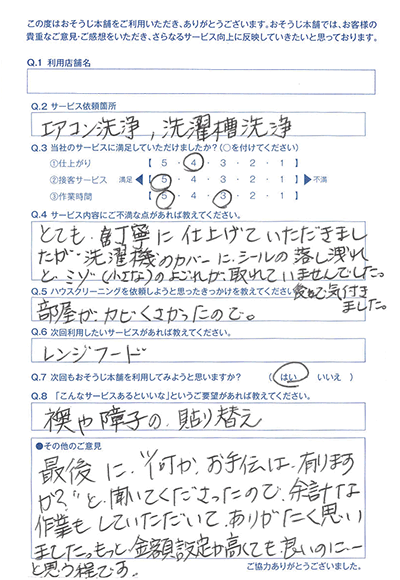 この度はおそうじ本舗をご利用いただき、ありがとうございます。おそうじ本舗では、お客様の
貴重なご意見・ご感想をいただき、さらなるサービス向上に反映していきたいと思っております。
Q.1 利用店舗名
Q.2 サービス依頼箇所
エアコン洗浄，洗濯槽洗浄
Q.3 当社のサービスに満足していただけましたか？（○を付けてください）
①仕上がり 【 5 ・ 4 ・ 3 ・ 2 ・ 1 】
②接客サービス 満足 ◀【 5 ・ 4 ・ 3 ・ 2 ・ 1 】▶ 不満
③作業時間 【 5 ・ 4 ・ 3 ・ 2 ・ 1 】
Q.4 サービス内容にご不満な点があれば教えてください。
とても、丁寧に仕上げていただきまし
たが、洗濯機のカバーに、シールの落し洩れ
と、ミゾ（小さな）のよごれが、取れていませんでした。
Q.5 ハウスクリーニングを依頼しようと思ったきっかけを教えてください
で気付き
ました。
部屋が、カビくさかったので。
Q.6 次回利用したいサービスがあれば教えてください。
レンジフード
Q.7 次回もおそうじ本舗を利用してみようと思いますか？ （ はい ・ いいえ ）
Q.8 「こんなサービスあるといいな」というご要望があれば教えてください。
襖や障子の、貼り替え
●その他のご意見
最後に、“何か、お手伝は、有ります
か？”と、聞いてくださったので、余計な
作業も、していただいて、ありがたく思い
ました。もっと、金額設定が高くても、良いのに…
と思う程です。
ご協力ありがとうございました。